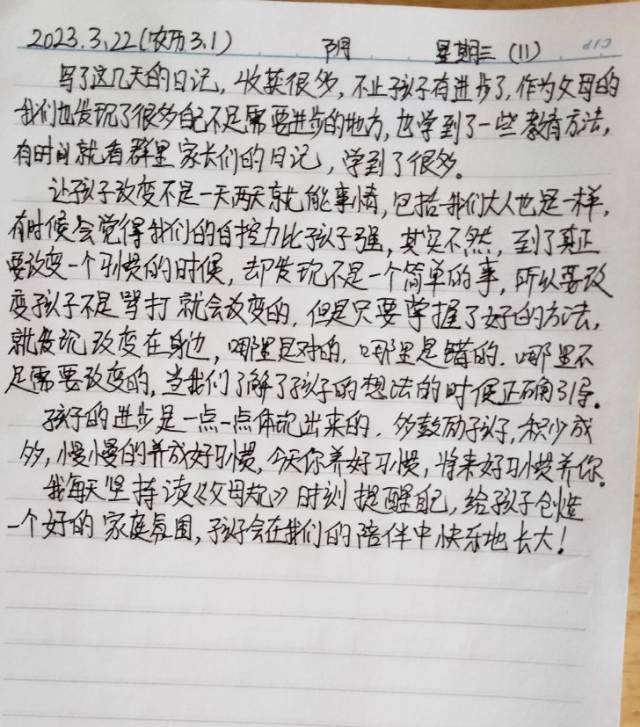 2023.3.22(农历3.1) 阴 星期三 (11)
写了这几天的日记,收获很多,不止孩子有进步了,作为父母的
我们也发现了很多自己不足需要进步的地方,也学到了一些教育方法,
有时间就看群里家长们的日记,学到了很多。
让孩子改变不是一天两天就能事情,包括我们大人也是一样,
有时候会觉得我们的自控力比孩子强,其实不然,到了真正
要改变一个习惯的时候,却发现不是一个简单的事,所以要改
变孩子不是骂打就会改变的,但是只要掌握了好的方法,
就发现改变在身边,哪里是对的,哪里是错的,哪里不
足需要改变的,当我们了解了孩子的想法的时候正确引导。
孩子的进步是一点一点体现出来的,多鼓励孩子,积少成
多,慢慢的养成好习惯,今天你养好习惯,将来好习惯养你。
我每天坚持读《父母规》时刻提醒自己,给孩子创造
一个好的家庭氛围,孩子会在我们的陪伴中快乐地长大!